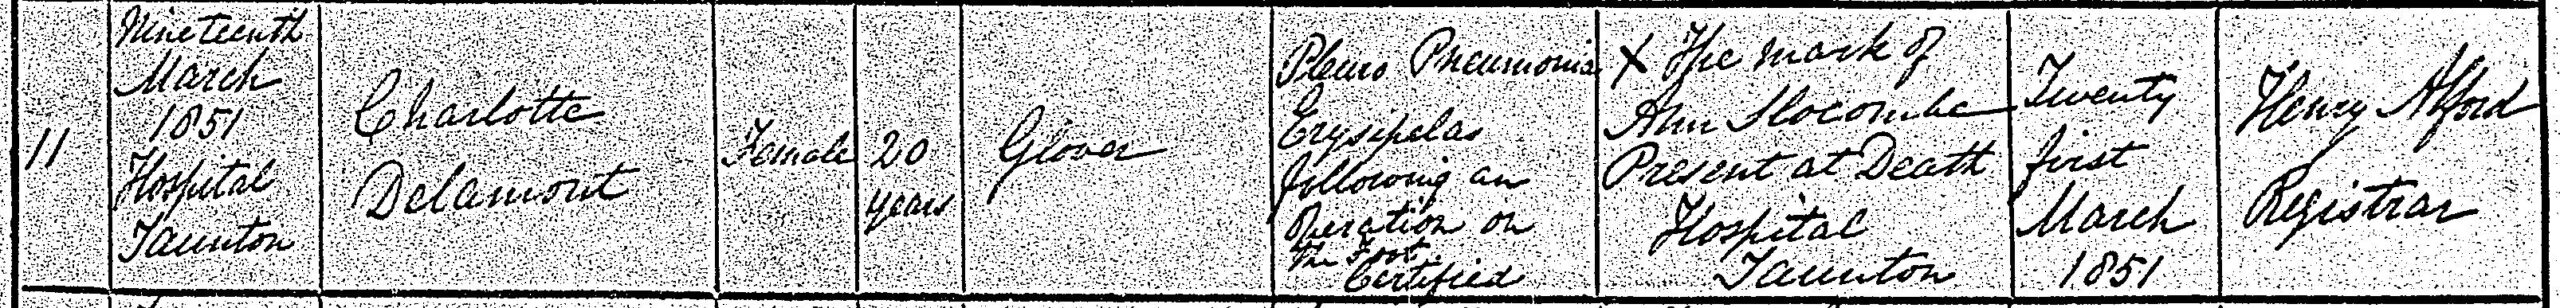 11
Nineteenth
March
1851
Hospital
Taunton
Charlotte
Delamont
Female
20
years
Glover
Pleuro Pneumonia
Erysipelas
following an
Operation on
the Foot
Certified
X The mark of
Ann Slocombe
Present at Death
Hospital
Taunton
Twenty
first
March
1851
Henry Alford
Registrar